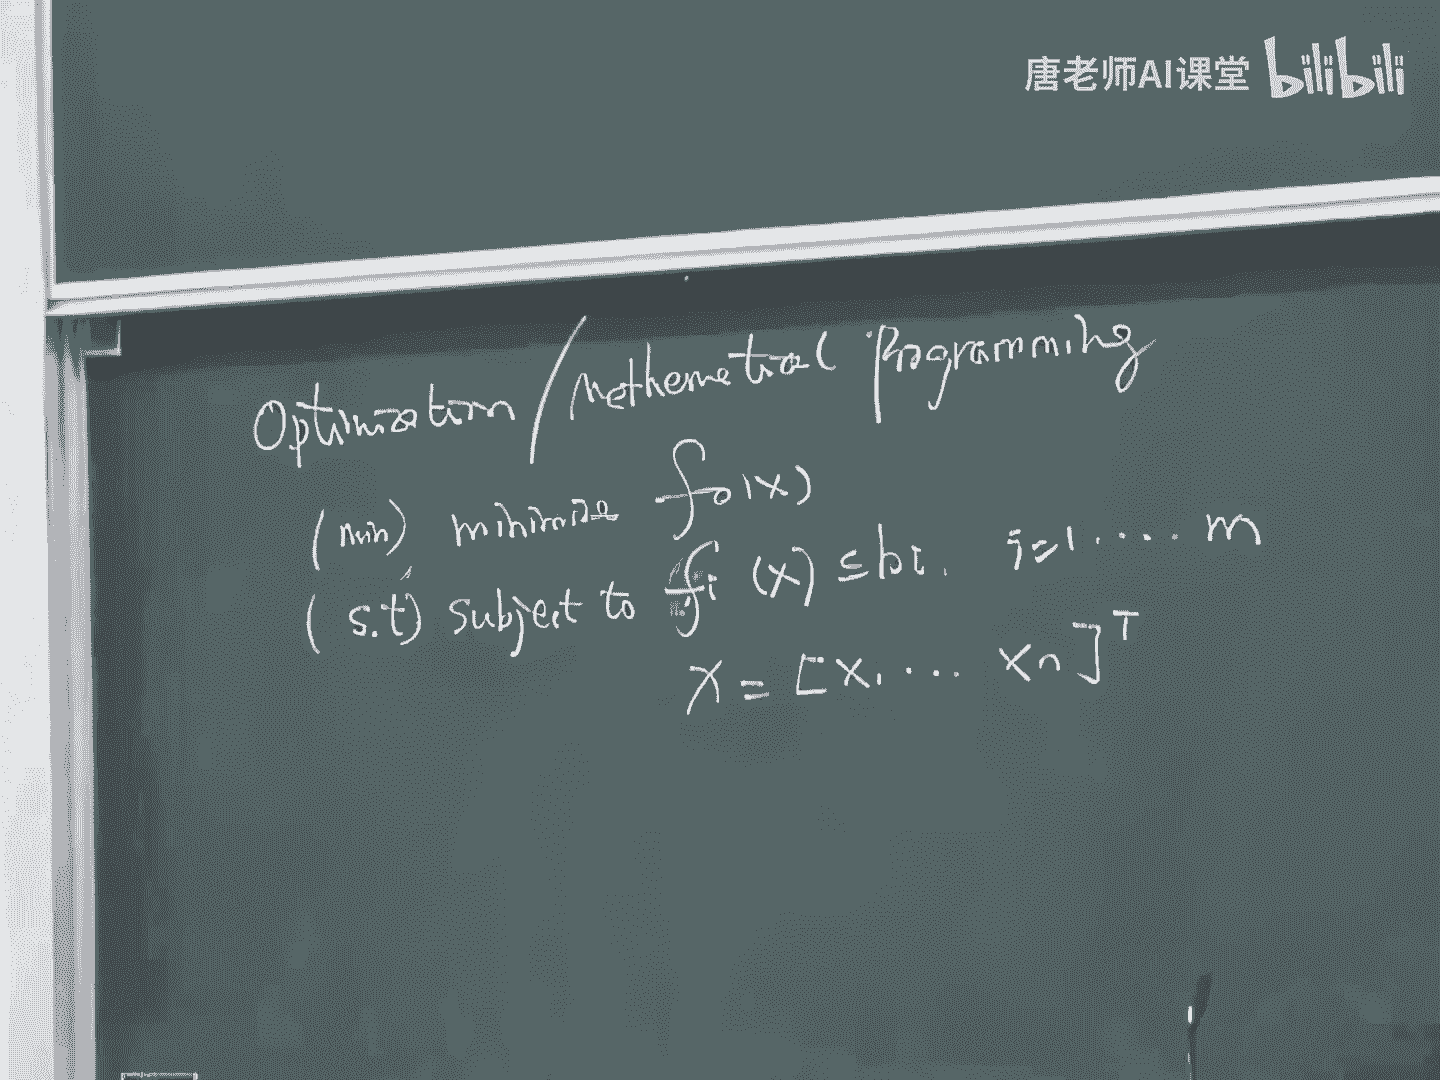 唐老师AI课堂 bilibili
Optimization / Mathematical Programming
(min) minimize f₀(x)
(s.t) subject to fᵢ (x) ≤ bᵢ. i=1 .... m
x = [x₁ ... xₙ]ᵀ